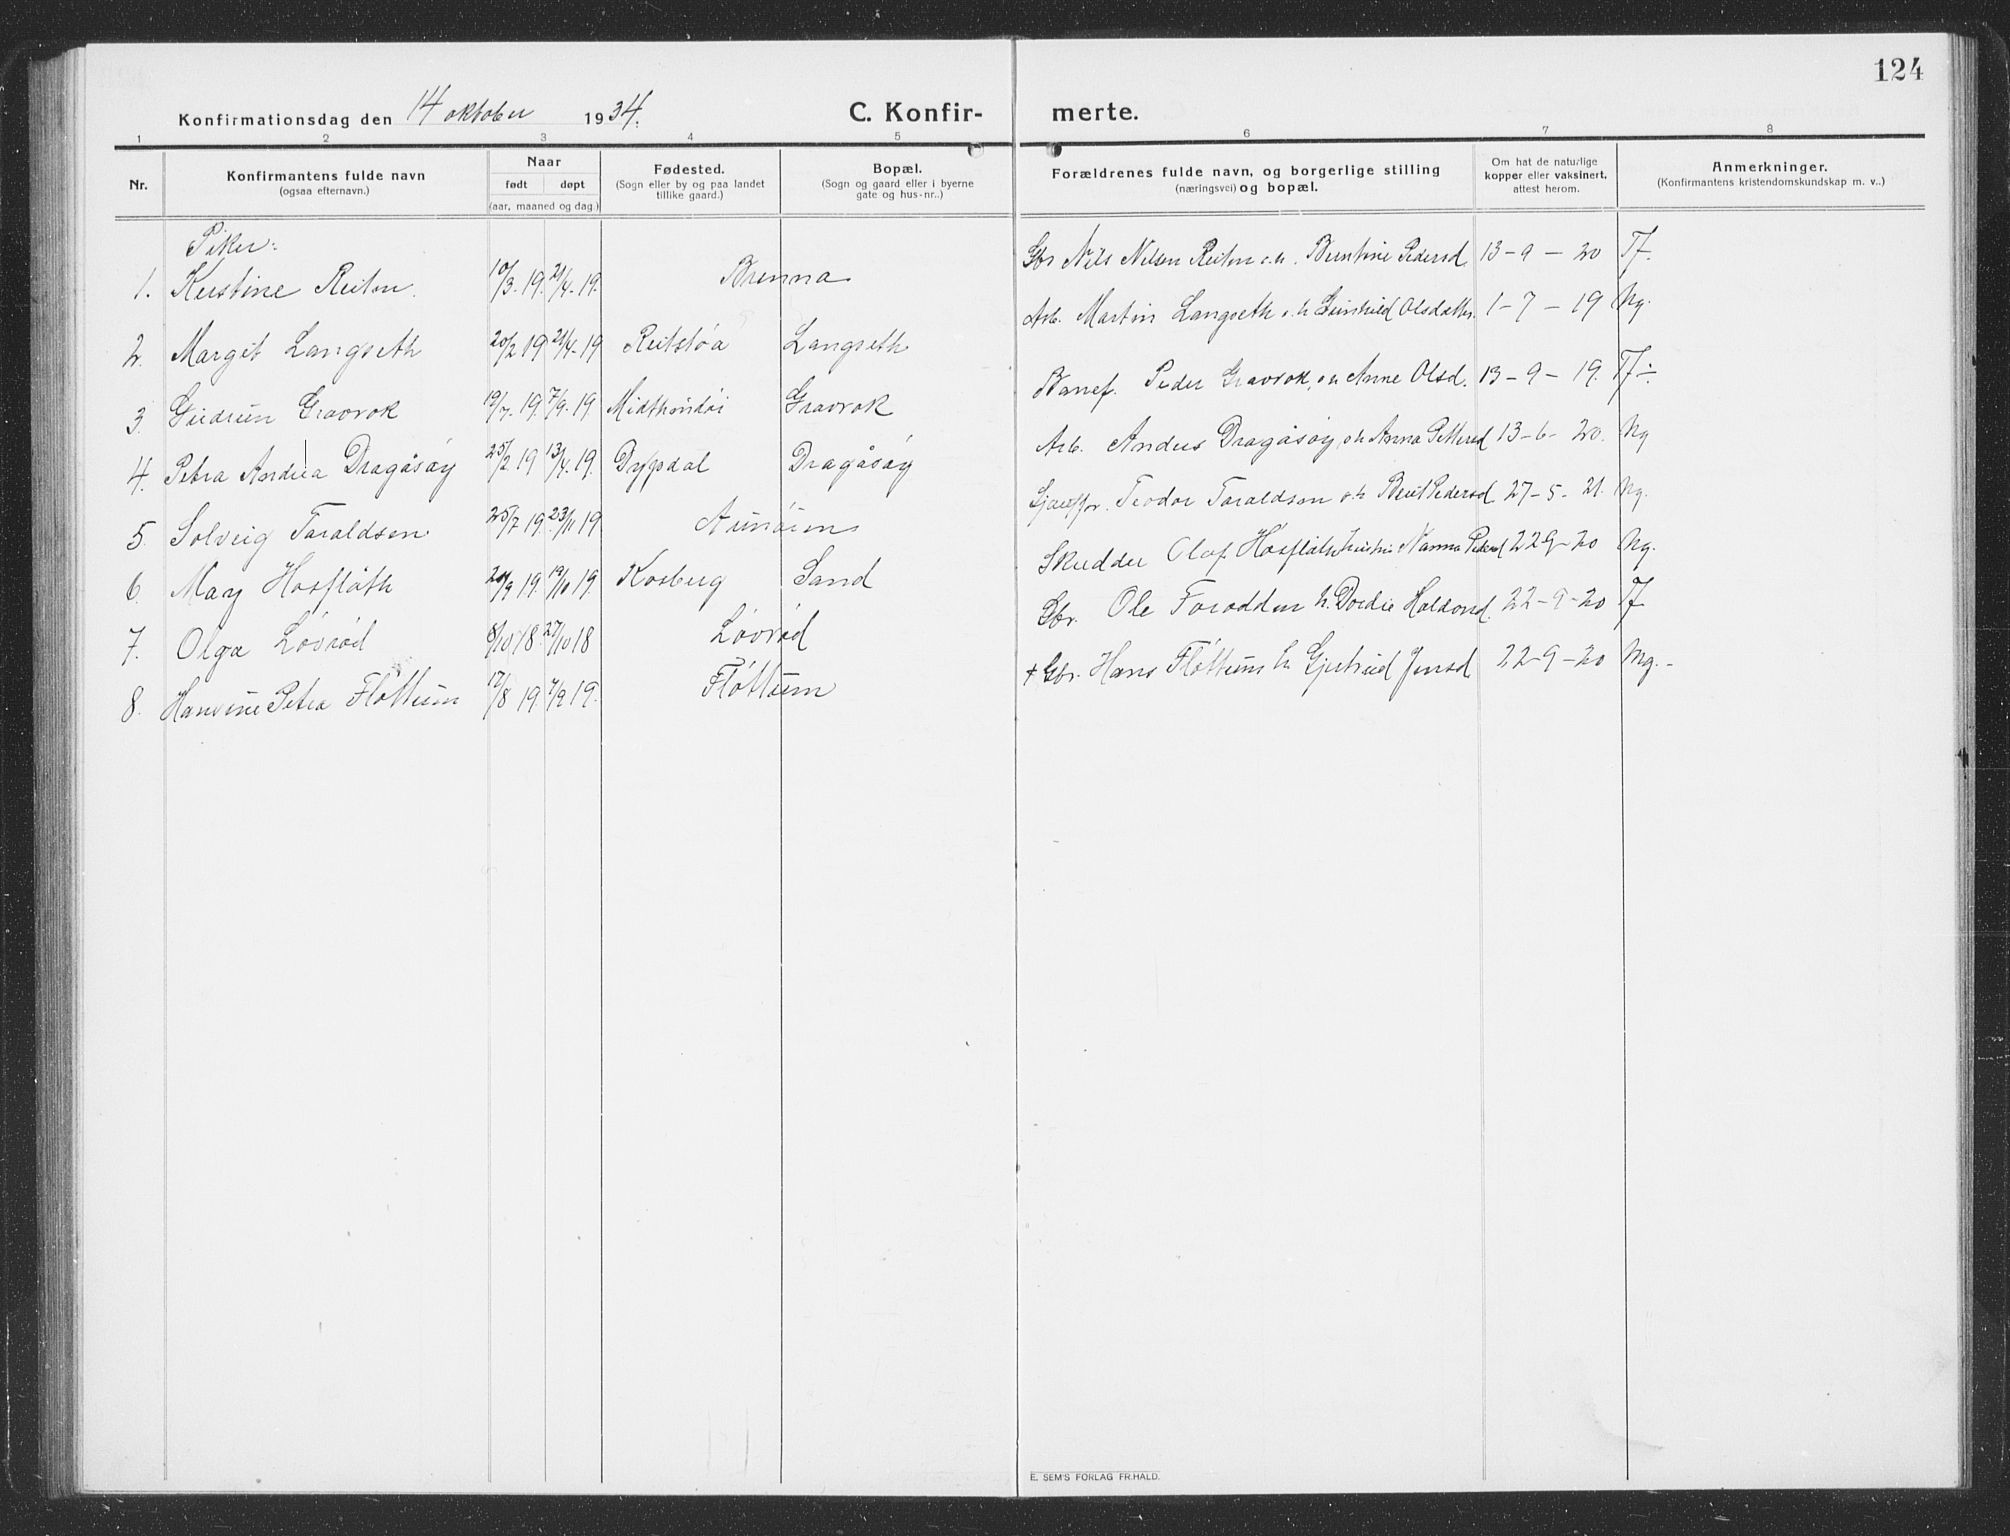 124
Konfirmationsdag den 14 oktober 1934.
C. Konfir- merte.
1 2 3 4 5 6 7 8
Nr.
Konfirmantens fulde navn
(ogsaa efternavn.)
Naar
født døpt
(aar, maaned og dag.)
Fødested.
(Sogn eller by og paa landet
tillike gaard.)
Bopæl.
(Sogn og gaard eller i byerne
gate og hus-nr..)
Forældrenes fulde navn, og borgerlige stilling
(næringsvei) og bopæl.
Om hat de naturlige
kopper eller vaksinert,
attest herom.
Anmerkninger.
(Konfirmantens kristendomskundskap m. v..)
Piker:
1. Kerstine Reiten. 10/3 19. 21/4-19. Brenna Gbr Nils Nilsen Reiten o.h. Berntine Pedersd. 13-9-20 Tf.
2. Margit Langseth 20/2 19 21/4-19 Reitstøa Langseth Arb. Martin Langseth o.h Gunhild Olsdatter. 1-7-19 Mg.
3. Gudrun Gravrok 19/7. 19. 7/9. 19. Gravrok Banef. Peder Gravrok, o h Anne Olsd. 13-9-19. Tf÷.
4. Petra Andrea Dragåsøy 25/2 19 13/4. 19. Drygsdal Dragåsøy Arb. Anders Dragåsøy, o h Anna Pettersd 13-6-20. Mg
5. Solveig Taraldsen 25/7 19. 23/11 19 Aunøien Teodor Taraldsen o.h Berit Pedersd. 27-5-21. Mg.
6. Mary Hosfløth 20/9 19. 19/10 19. Kosberg Sand Skredder Olaf Hosfløth Nanna Pedersd 22 9-20 Mg.
7. Olga Løvrød 8/10 18. 27/10 18 Løvrød Gbr. Ole h. Dordie 22-9-20 Tf
8. Hansine Petra Fløttum 12/8 19. 7/9 19. Fløttum + Gbr. Hans Fløttum h Gjertrud Jensd 22-9-20 Mg.-
E. SEM'S FORLAG FR.HALD.